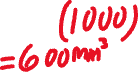 (1000)
=600mm³